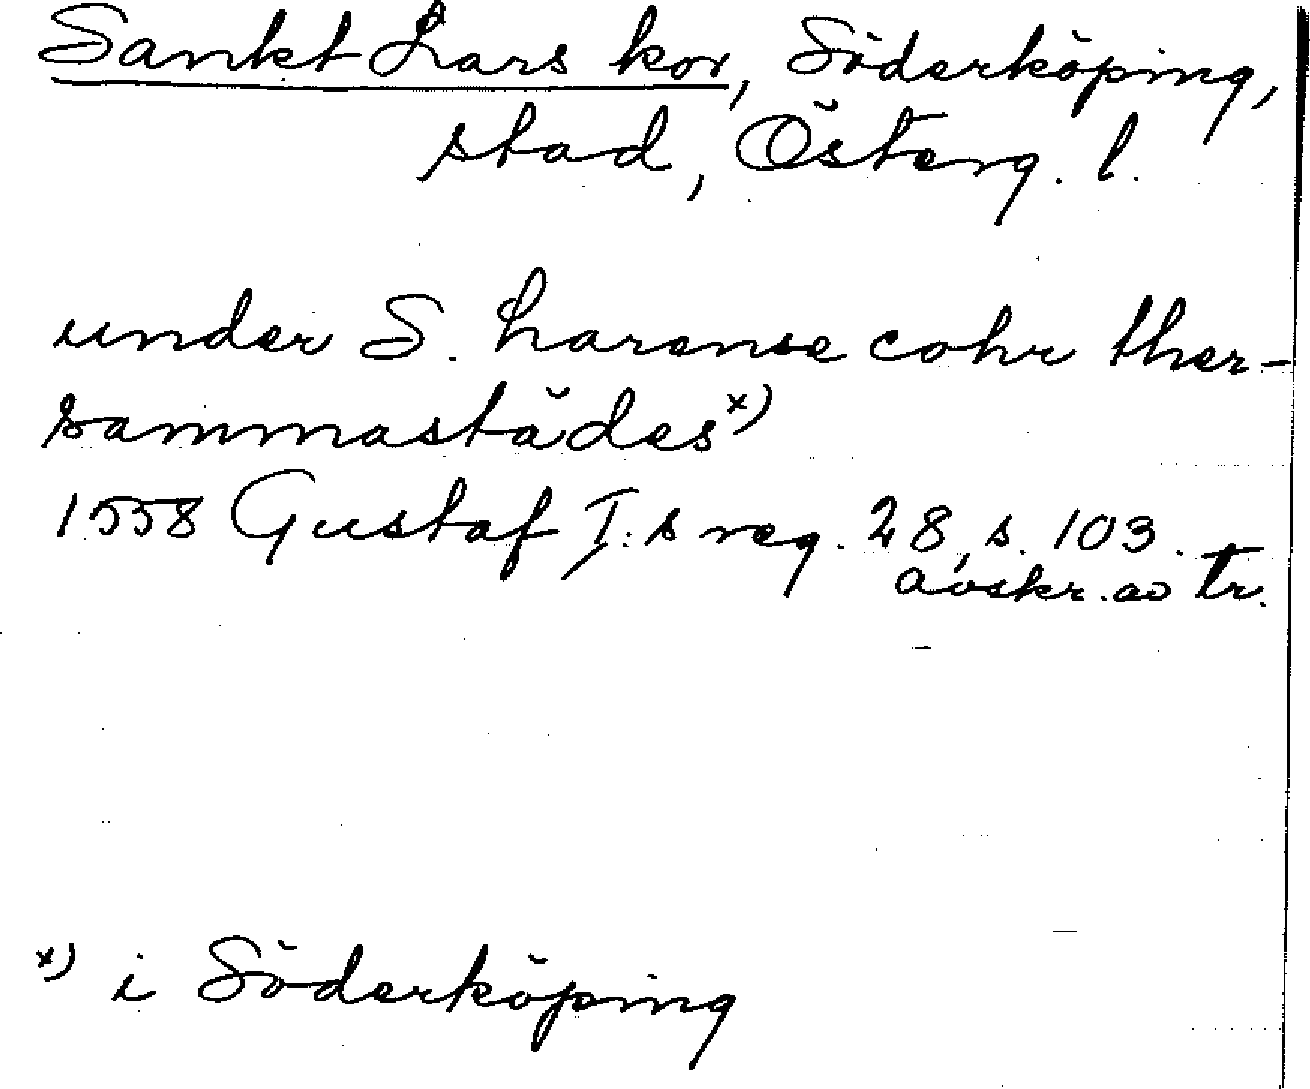 Sankt Lars kor, Söderköping,
stad, Österg. l.
under S. Larense cohr ther-
sammastädes x)
1558 Gustaf I:s reg. 28, s. 103.
avskr. av tr.
x) i Söderköping